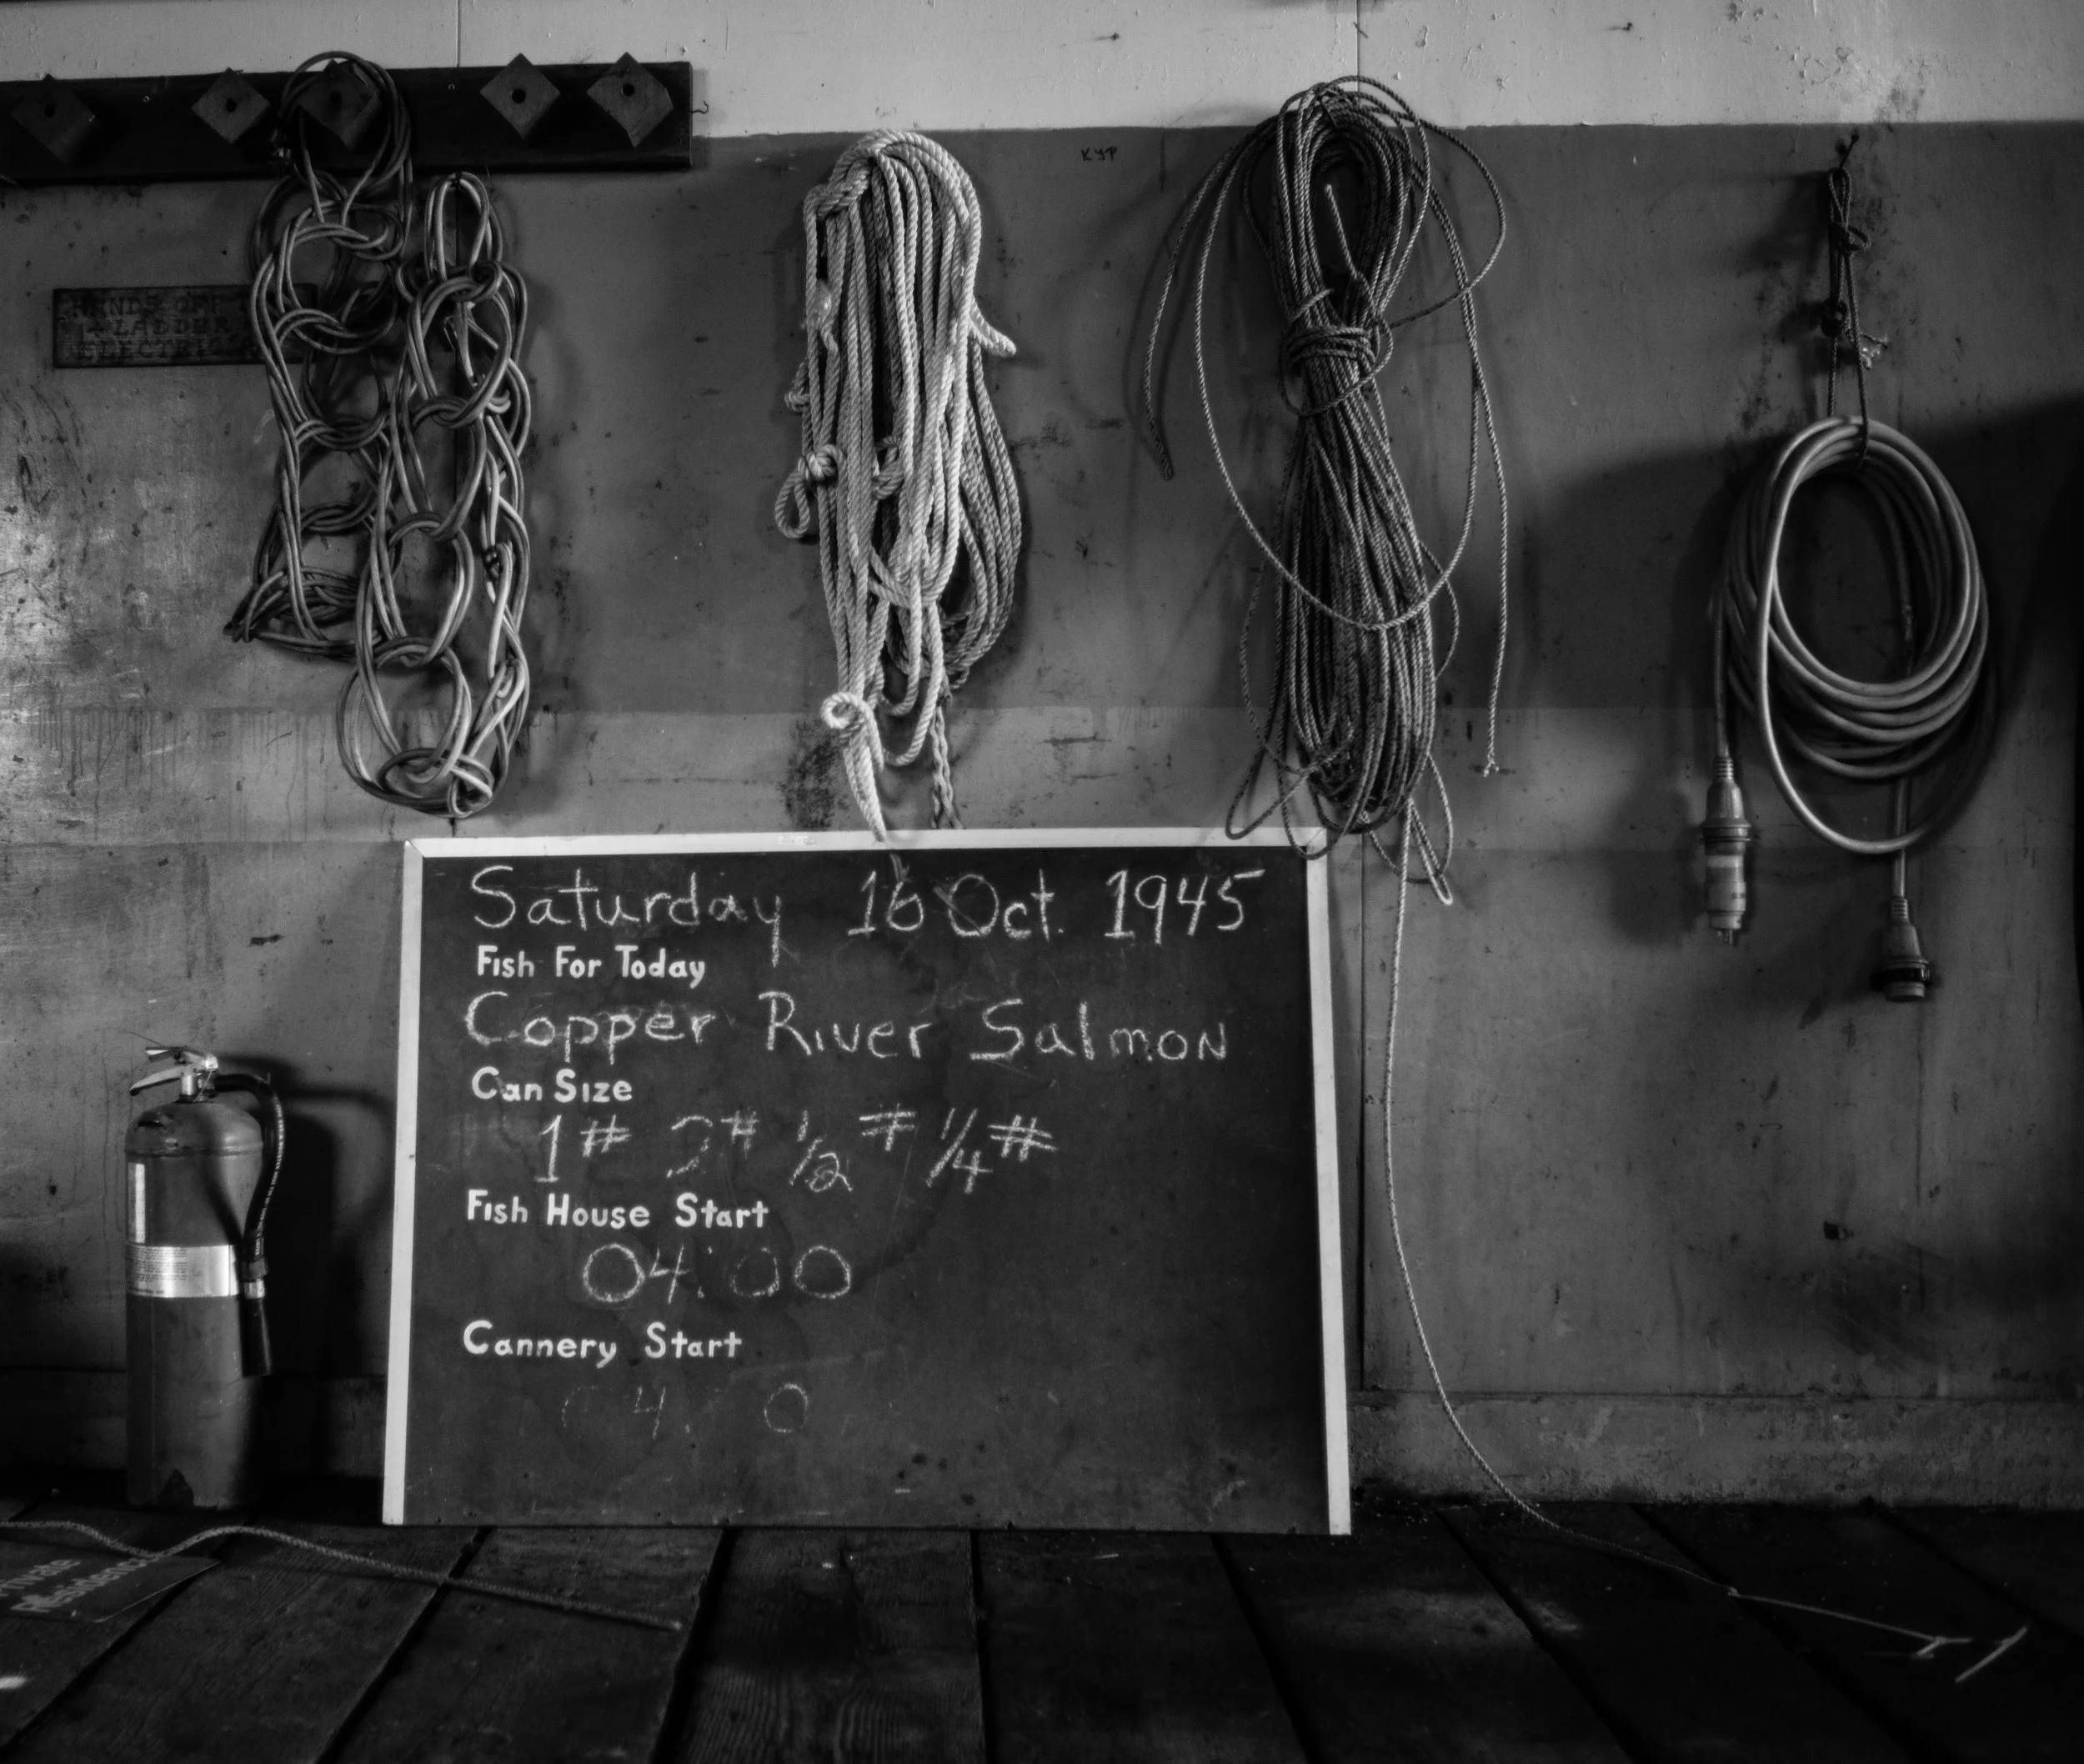 KYP
HANDS OFF
LADDER
Saturday 16 Oct. 1945
Fish For Today
Copper River Salmon
Can Size
1# 2# 1/2# 1/4#
Fish House Start
04:00
Cannery Start
Private
Residence